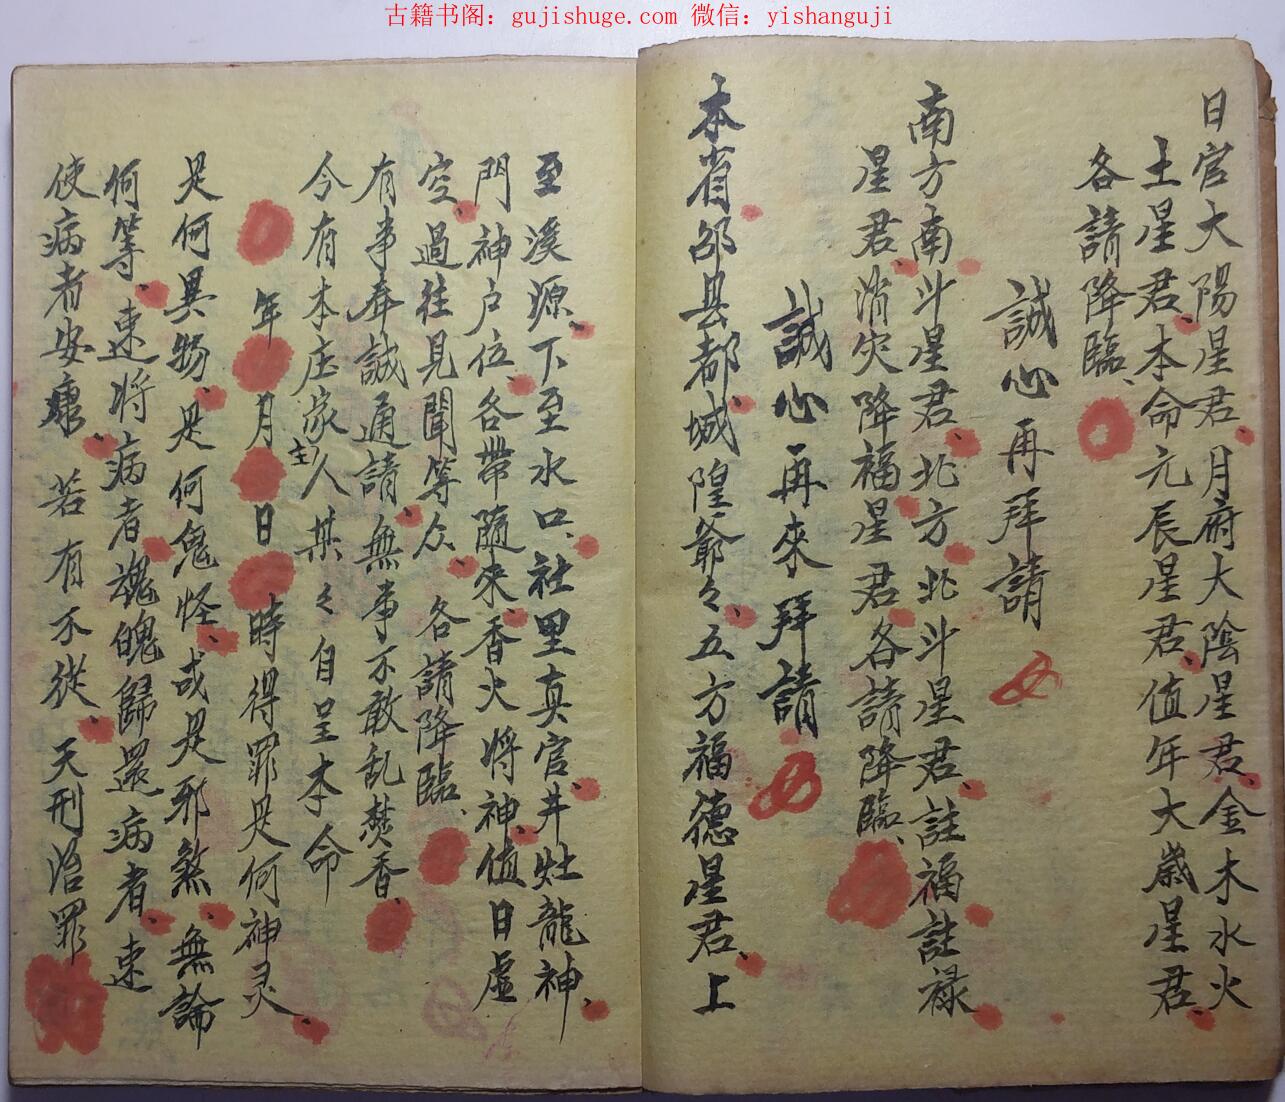 古籍书阁：gujishuge.com 微信：yishanguji
日宫大陽星君、月府大陰星君、金木水火
土星君、本命元辰星君、值年大歲星君、
各請降臨、
誠心再拜請
南方南斗星君、北方北斗星君、註福註禄
星君、消灾降福星君、各請降臨、
誠心再來拜請
本省邵县都城隍爺々、五方福德星君、上
至溪源、下至水口、社里真官、井灶龍神、
門神户位、各帶隨來、香火将神、值日虛
空、過往見聞等众、各請降臨、
有事奔誠通請、無事不敢乱焚香、
今有本庄家主人某々自呈本命
年 月 日 時得罪是何神灵、
是何異物、是何鬼怪、或是邪煞、無論
何等、速将病者魂魄歸還病者、速
使病者安康、若有不從、天刑治罪